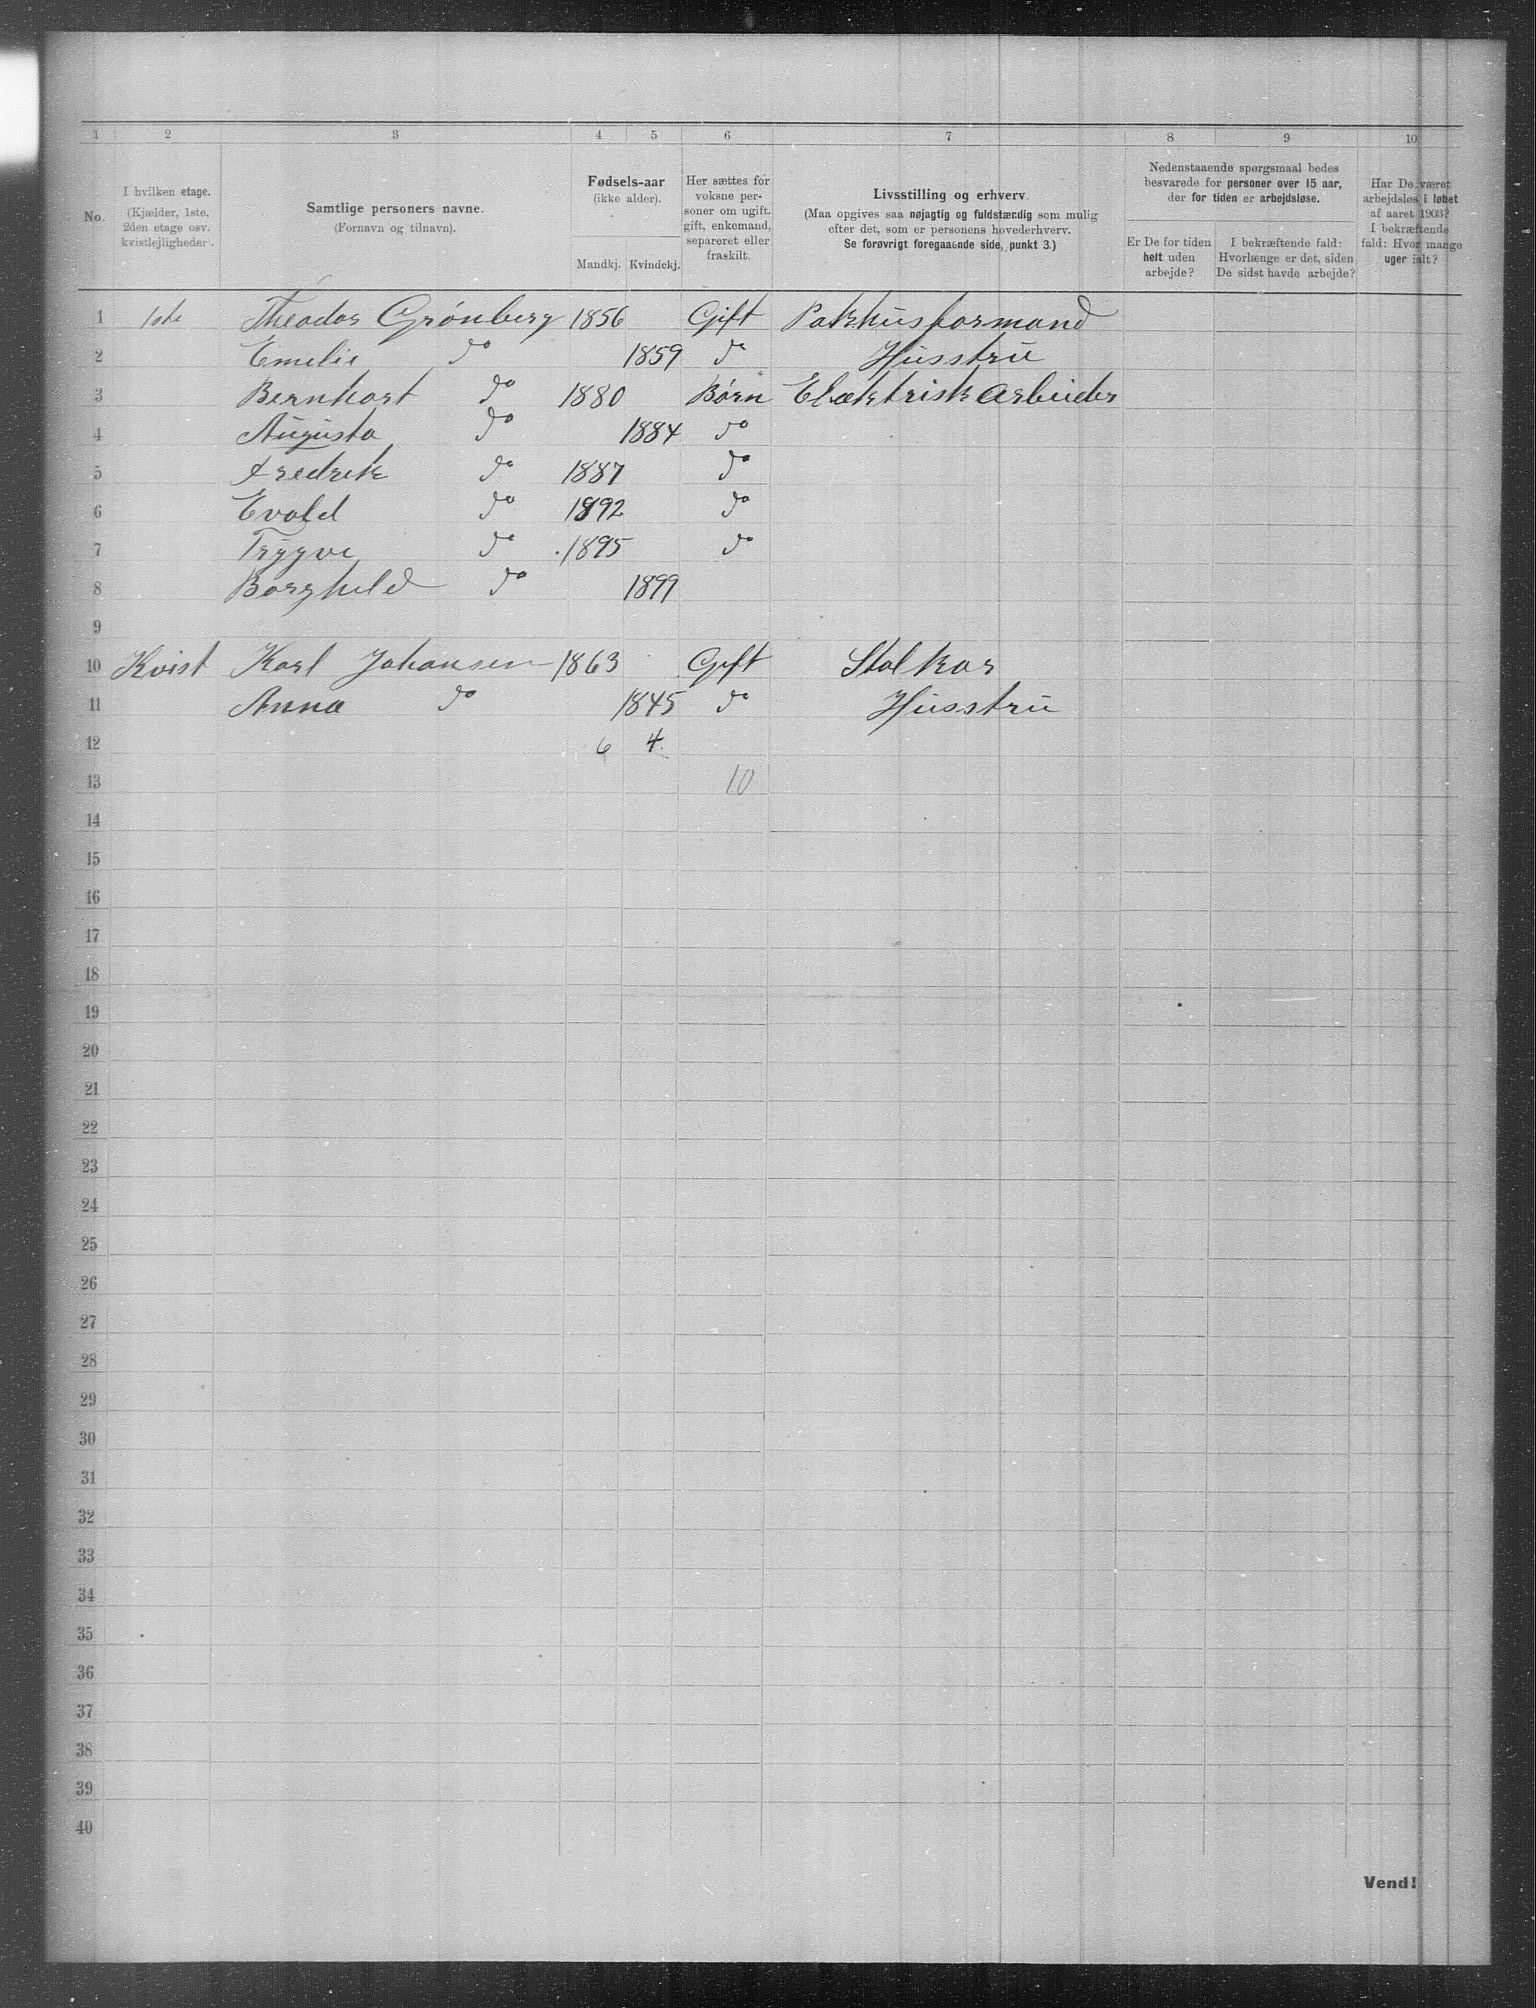 1 2 3 4 5 6 7 8 9 10
No.
I hvilken etage.
(Kjælder, 1ste,
2den etage osv.
kvistlejligheder).
Samtlige personers navne.
(Fornavn og tilnavn).
Fødsels-aar
(ikke alder).
Mandkj. Kvindekj.
Her sættes for
voksne per-
soner om ugift,
gift, enkemand,
separeret eller
fraskilt.
Livsstilling og erhverv.
(Maa opgives saa nøjagtig og fuldstændig som mulig
efter det, som er personens hovederhverv.
Se forøvrigt foregaaende side, punkt 3.)
Nedenstaaende spørgsmaal bedes
besvarede for personer over 15 aar,
der for tiden er arbejdsløse.
Er De for tiden
helt uden
arbejde?
I bekræftende fald:
Hvorlænge er det, siden
De sidst havde arbejde?
Har De været
arbejdsløs i løbet
af aaret 1903?
I bekræftende
fald: Hvor mange
uger ialt?
1 1ste Theodor Grønberg 1856 Gift Pakhusformand
2 Emelie do 1859 do Husstru
3 Bernhart do 1880 Børn Elektrisk Arbeider
4 Augusta do 1884 do
5 Fredrik do 1887 do
6 Evald do 1892 do
7 Trygve do 1895 do
8 Borghild do 1899
9
10 Kvist Karl Johansen 1863 Gift Stalkar
11 Anna do 1845 do Husstru
12 6 4
13 10
14
15
16
17
18
19
20
21
22
23
24
25
26
27
28
29
30
31
32
33
34
35
36
37
38
39
40
Vend!